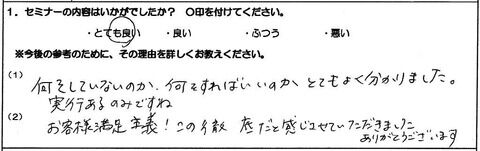 1．セミナーの内容はいかがでしたか？　〇印を付けてください。
・とても良い　・良い　・ふつう　・悪い
※今後の参考のために、その理由を詳しくお教えください。
(1)
何をしていないのか、何をすればいいのか、とてもよく分かりました。
実行あるのみですね
(2)
お客様満足主義！この徹底だと感じさせていただきました
ありがとうございます